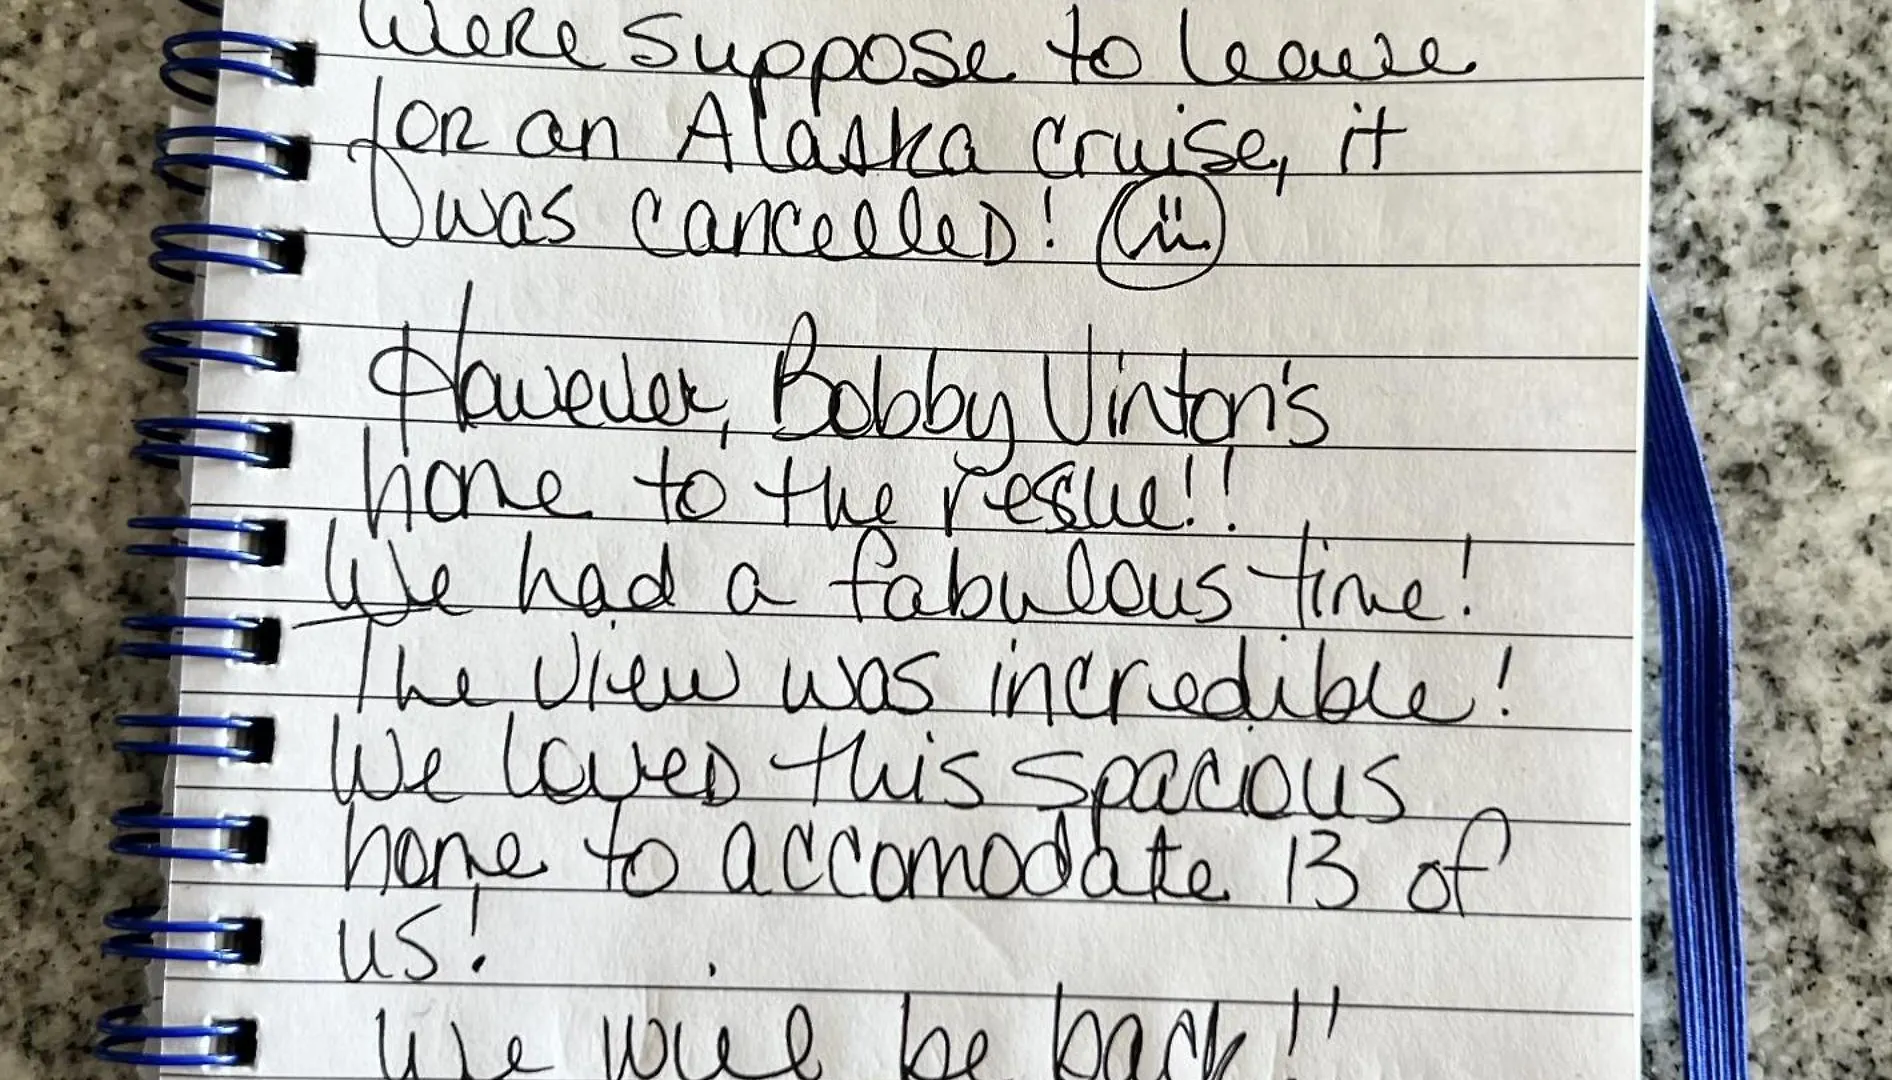 Were suppose to leave
for an Alaska cruise, it
was cancelled!
However, Bobby Vinton's
home to the rescue!!
We had a fabulous time!
The view was incredible!
We loved this spacious
home to accomodate 13 of
us!
We will be back!!